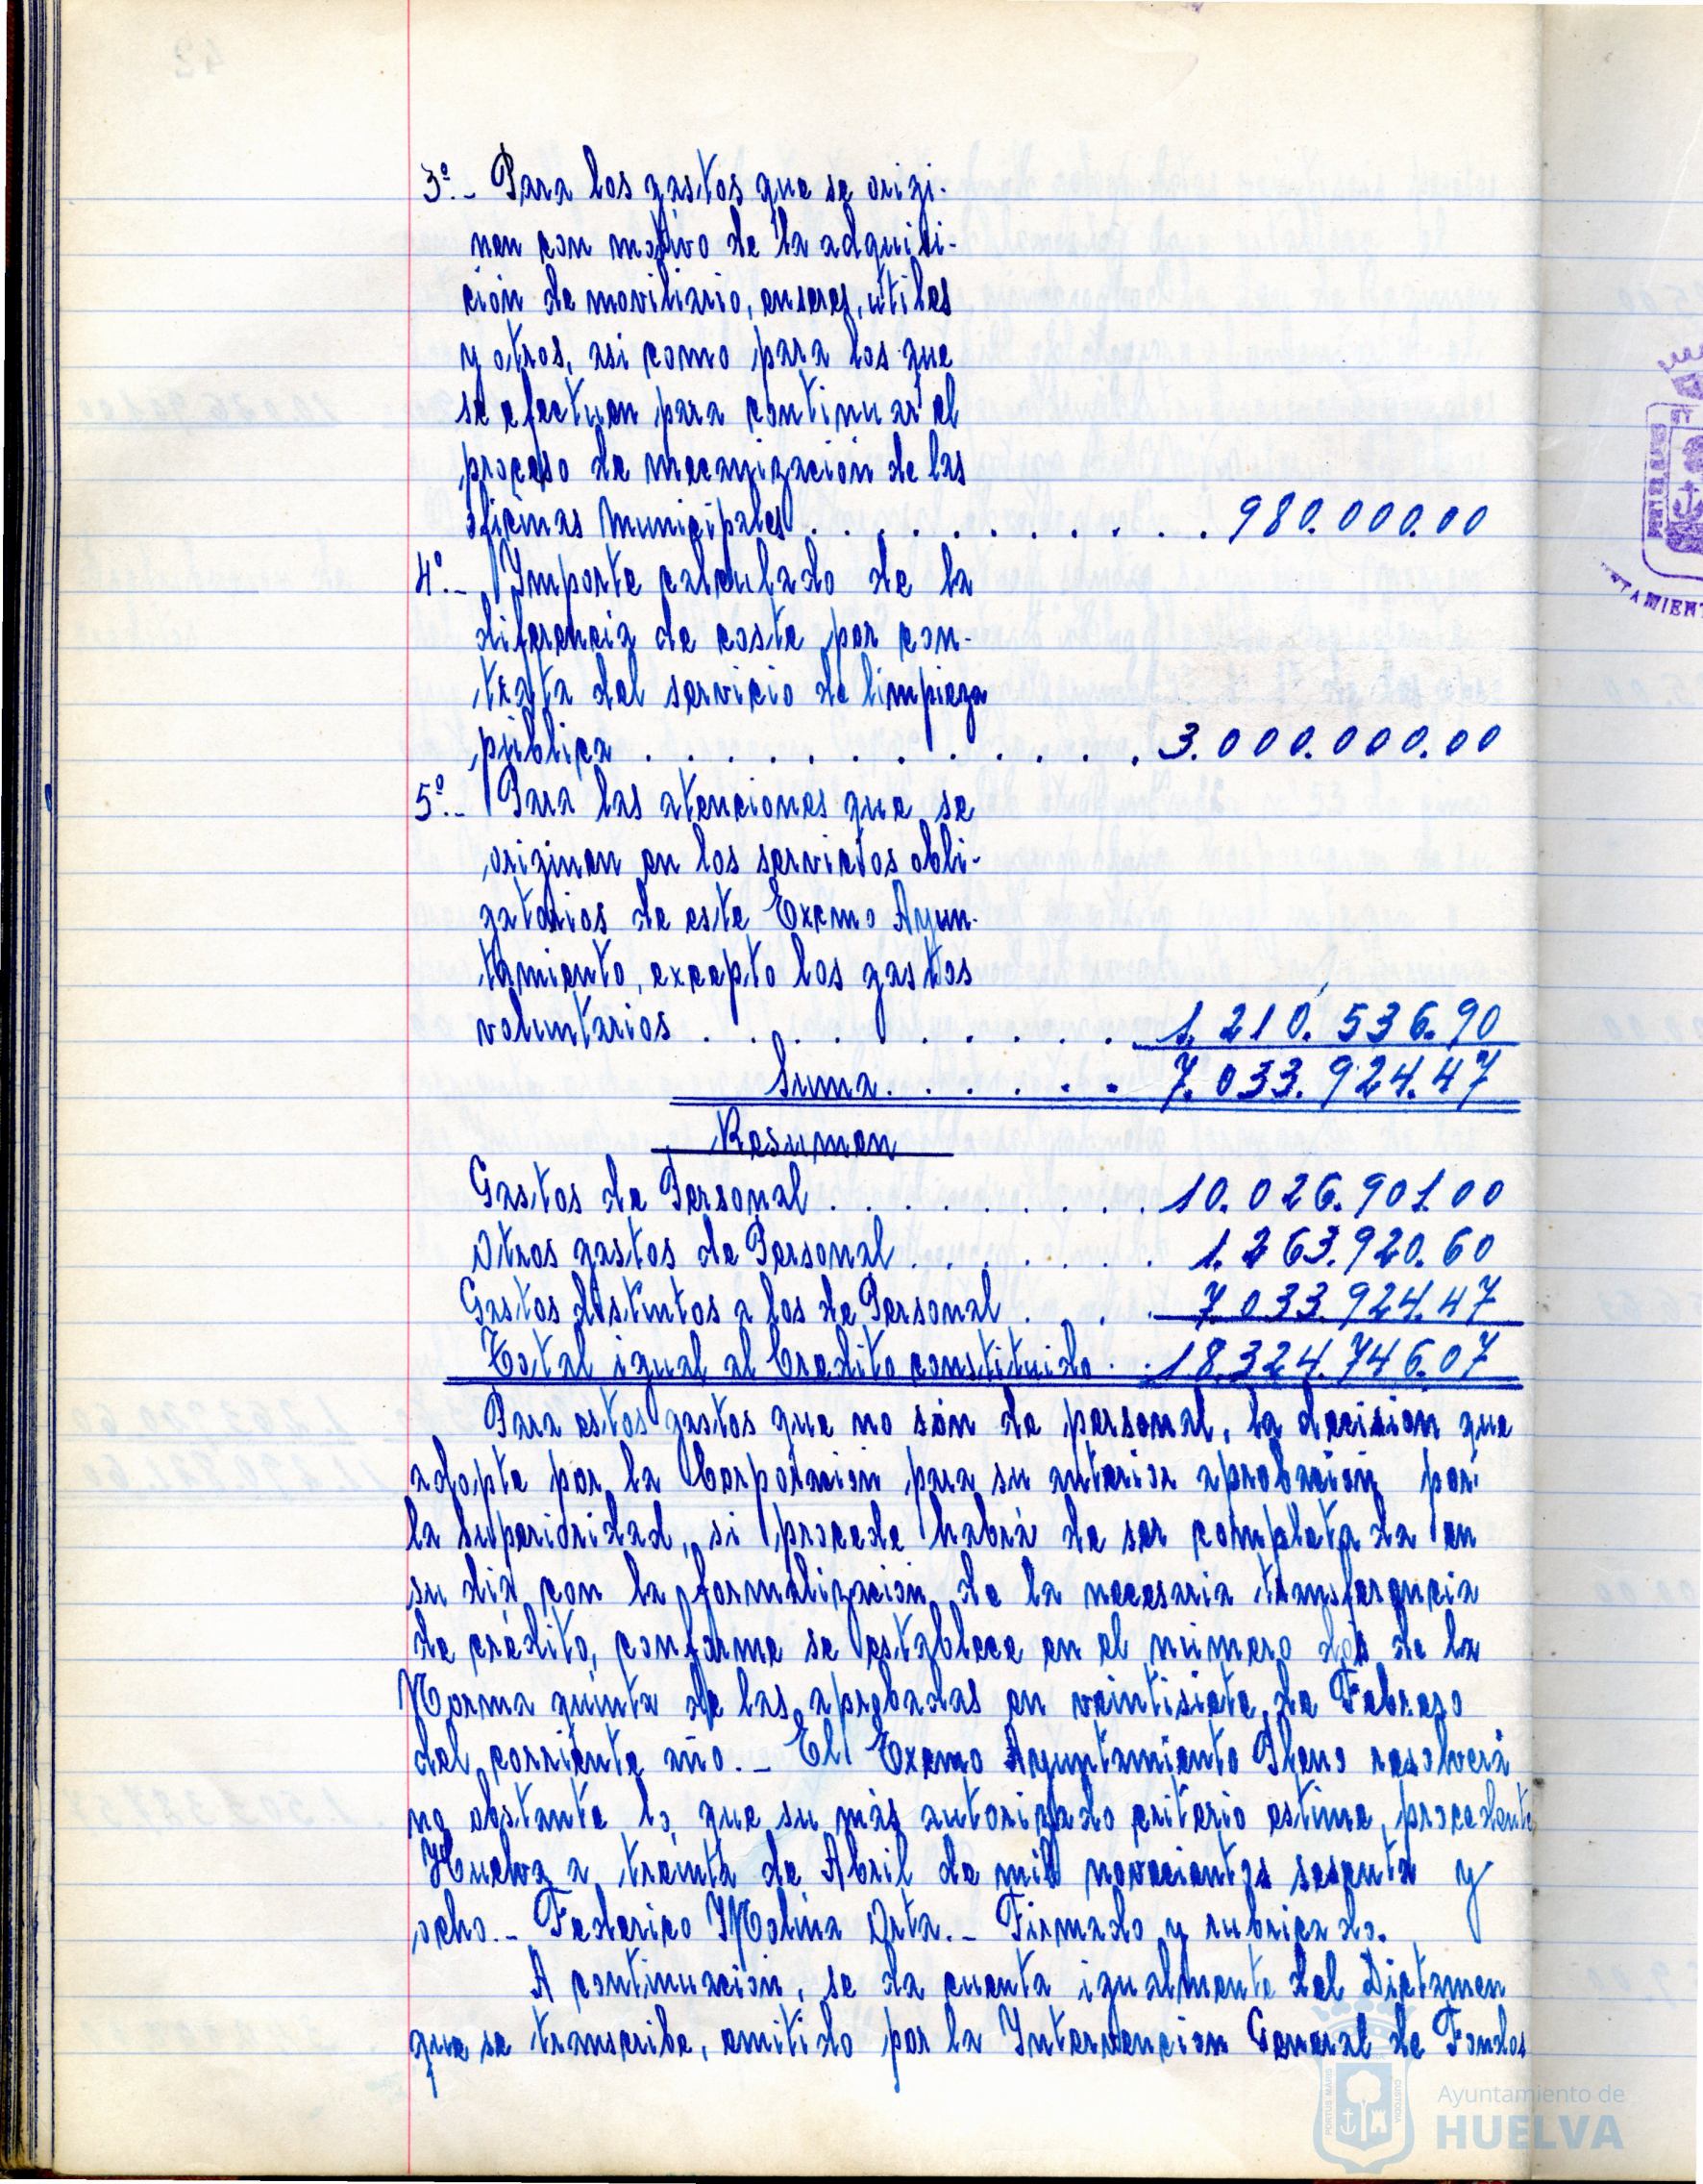 3º.- Para los gastos que se origi-
nen con motivo de la adquisi-
ción de moviliario, enseres, útiles
y otros, asi como para los que
se efectuen para continuar el
proceso de mecanización de las
oficinas Municipales . . . . . . . . . . 980.000.00
4º.- Importe calculado de la
diferencia de coste por con-
trata del servicio de limpieza
pública . . . . . . . . . . . . 3.000.000.00
5º.- Para las atenciones que se
originen en los servicios obli-
gatorios de este Excmo Ayun-
tamiento, excepto los gastos
voluntarios . . . . . . . . . . 1.210.536.90
Suma. . . . . . 7.033.924.47
Resumen
Gastos de Personal . . . . . . . . . 10.026.901.00
Otros gastos de Personal . . . . . . . 1.263.920.60
Gastos distintos a los de Personal . . . . 7.033.924.47
Total igual al Credito constituido . . 18.324.746.07
Para estos gastos que no són de personal, la decision que
adopte por la Corporación para su anterior aprobación por
la Superioridad, si procede habrá de ser completada en
su día con la formalización de la necesaria transferencia
de crédito, conforme se establece en el número dos de la
Norma quinta de las aprobadas en veintisiete de Febrero
del corriente año.- El Excmo Ayuntamiento Pleno resolverá
no obstante lo que su más autorizado criterio estime procedente
Huelva a treinta de Abril de mil novecientos sesenta y
ocho.- Federico Molina Orta.- Firmado y rubricado.
A continuación, se da cuenta igualmente del Dictamen
que se transcribe, emitido por la Intervencion General de Fondos
Ayuntamiento de
HUELVA